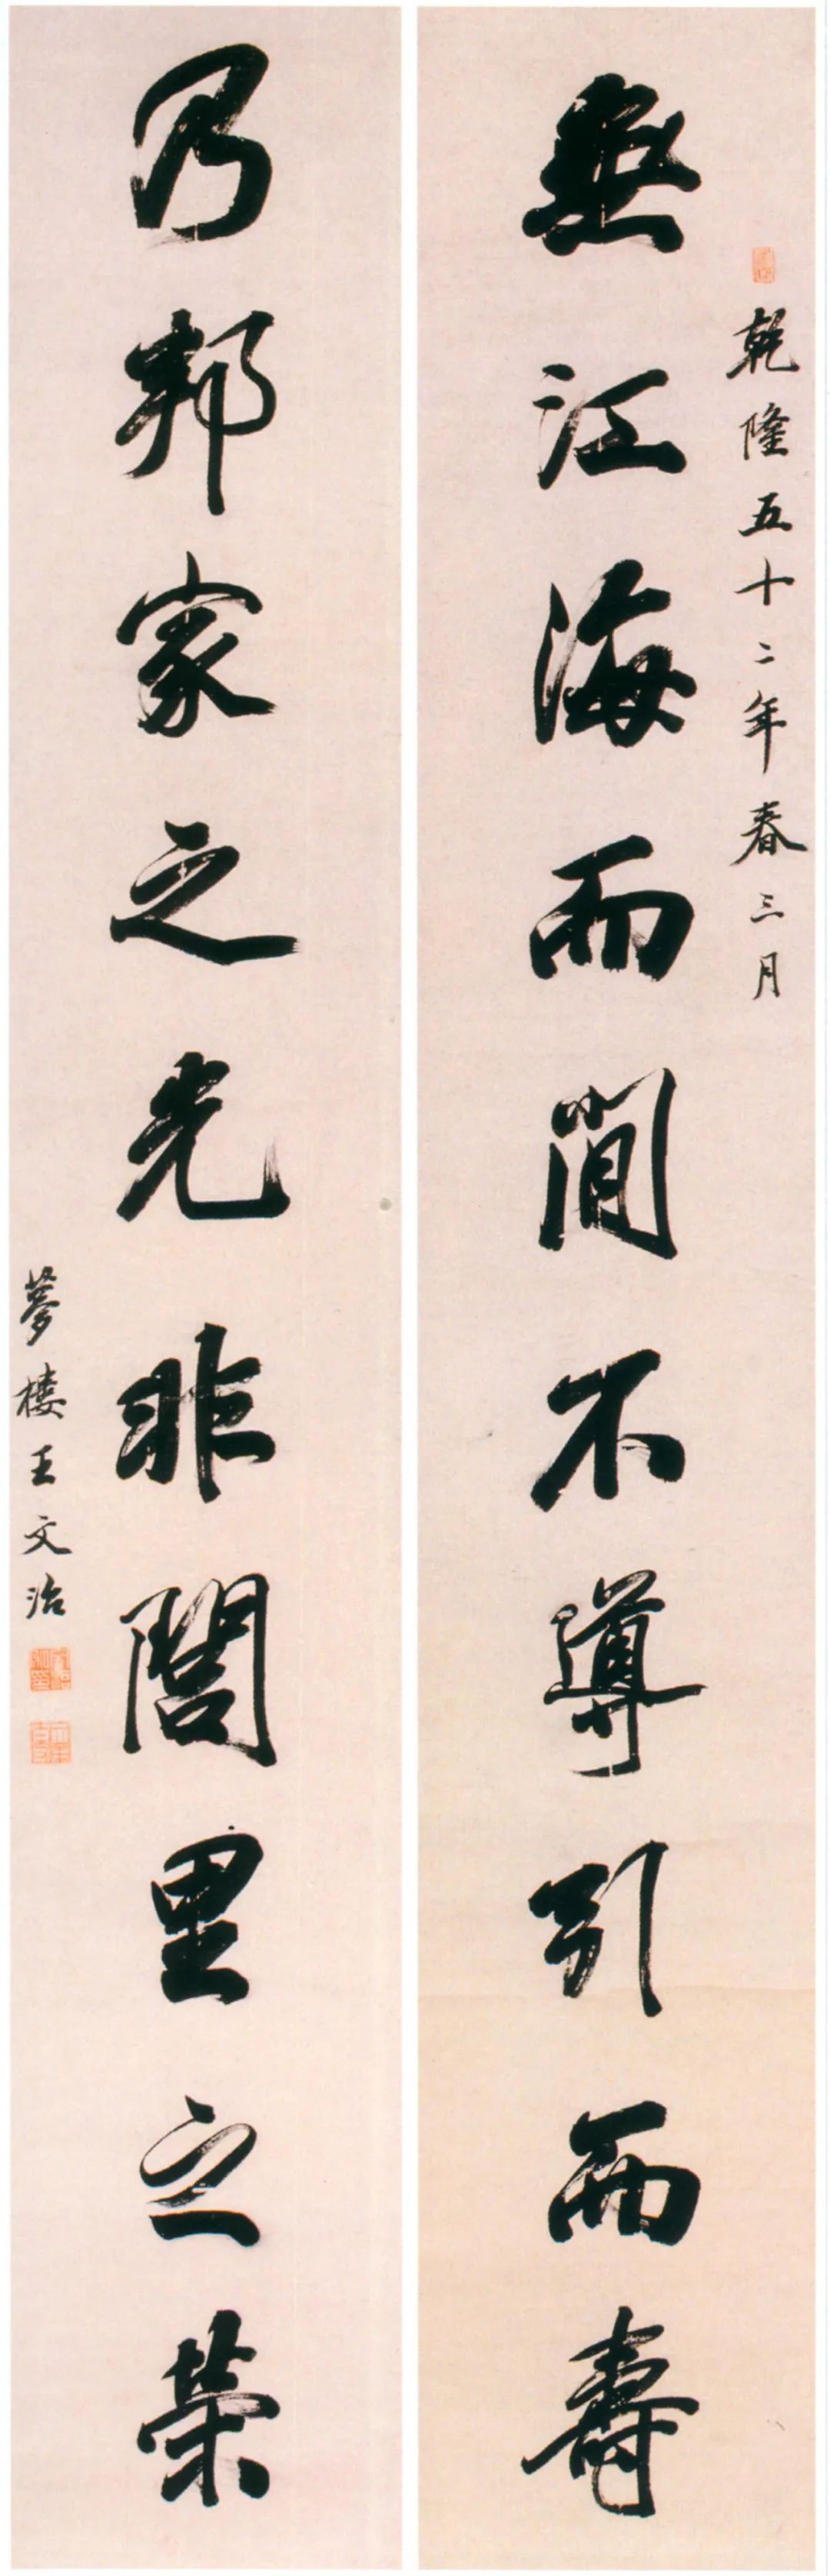 乾隆五十二年春三月
無江海而閒不導引而壽
乃邦家之光非閭里之榮
夢樓王文治